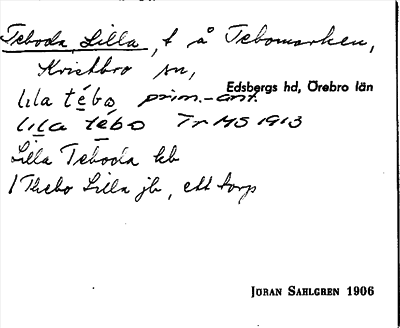 Teboda, Lilla, t å Tebomarken,
Kvistbro sn,
Edsbergs hd, Örebro län
lila tébo, prim.-ant.
lila tébo Tr MS 1913
Lilla Teboda kb
1 Thebo Lilla jb, ett torp
JORAN SAHLGREN 1906